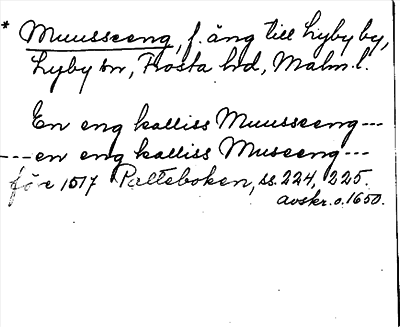 * Muusseeng, f. äng till Lyby by,
Lyby sn, Frosta hd, Malm. l.
En eng kalliss Muusseeng ---
--- en eng kalliss Museeng ---
före 1517 Palteboken, ss. 224, 225.
avskr. o. 1650.